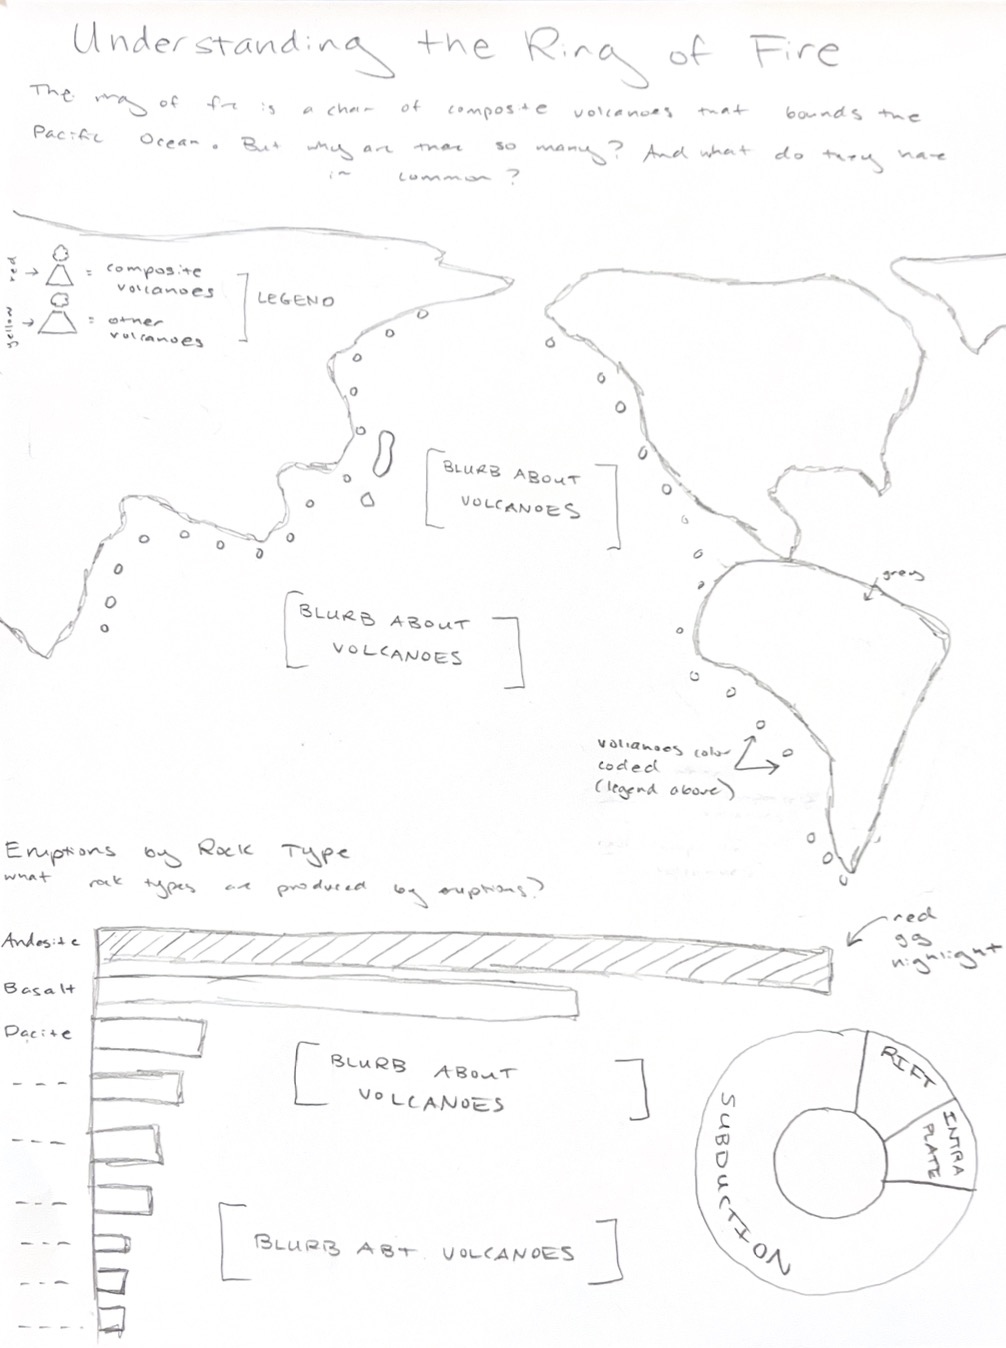 Understanding the Ring of Fire
The ring of fire is a chain of composite volcanoes that bounds the
Pacific Ocean. But why are there so many? And what do they have
in common?
red → = composite
volcanoes
yellow → = other
volcanoes
LEGEND
BLURB ABOUT
VOLCANOES
BLURB ABOUT
VOLCANOES
grey
volcanoes color
coded
(legend above)
Eruptions by Rock Type
what rock types are produced by eruptions?
Andesite
red
as
highlight
Basalt
Dacite
BLURB ABOUT
VOLCANOES
BLURB ABT. VOLCANOES
RIFT
INTRA
PLATE
SUBDUCTION